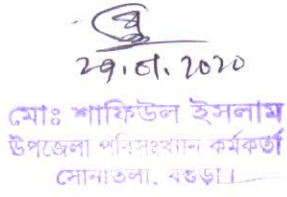 ২৭.০১.২০২০
মোঃ শাফিউল ইসলাম
উপজেলা পরিসংখ্যান কর্মকর্তা
সোনাতলা, বগুড়া।